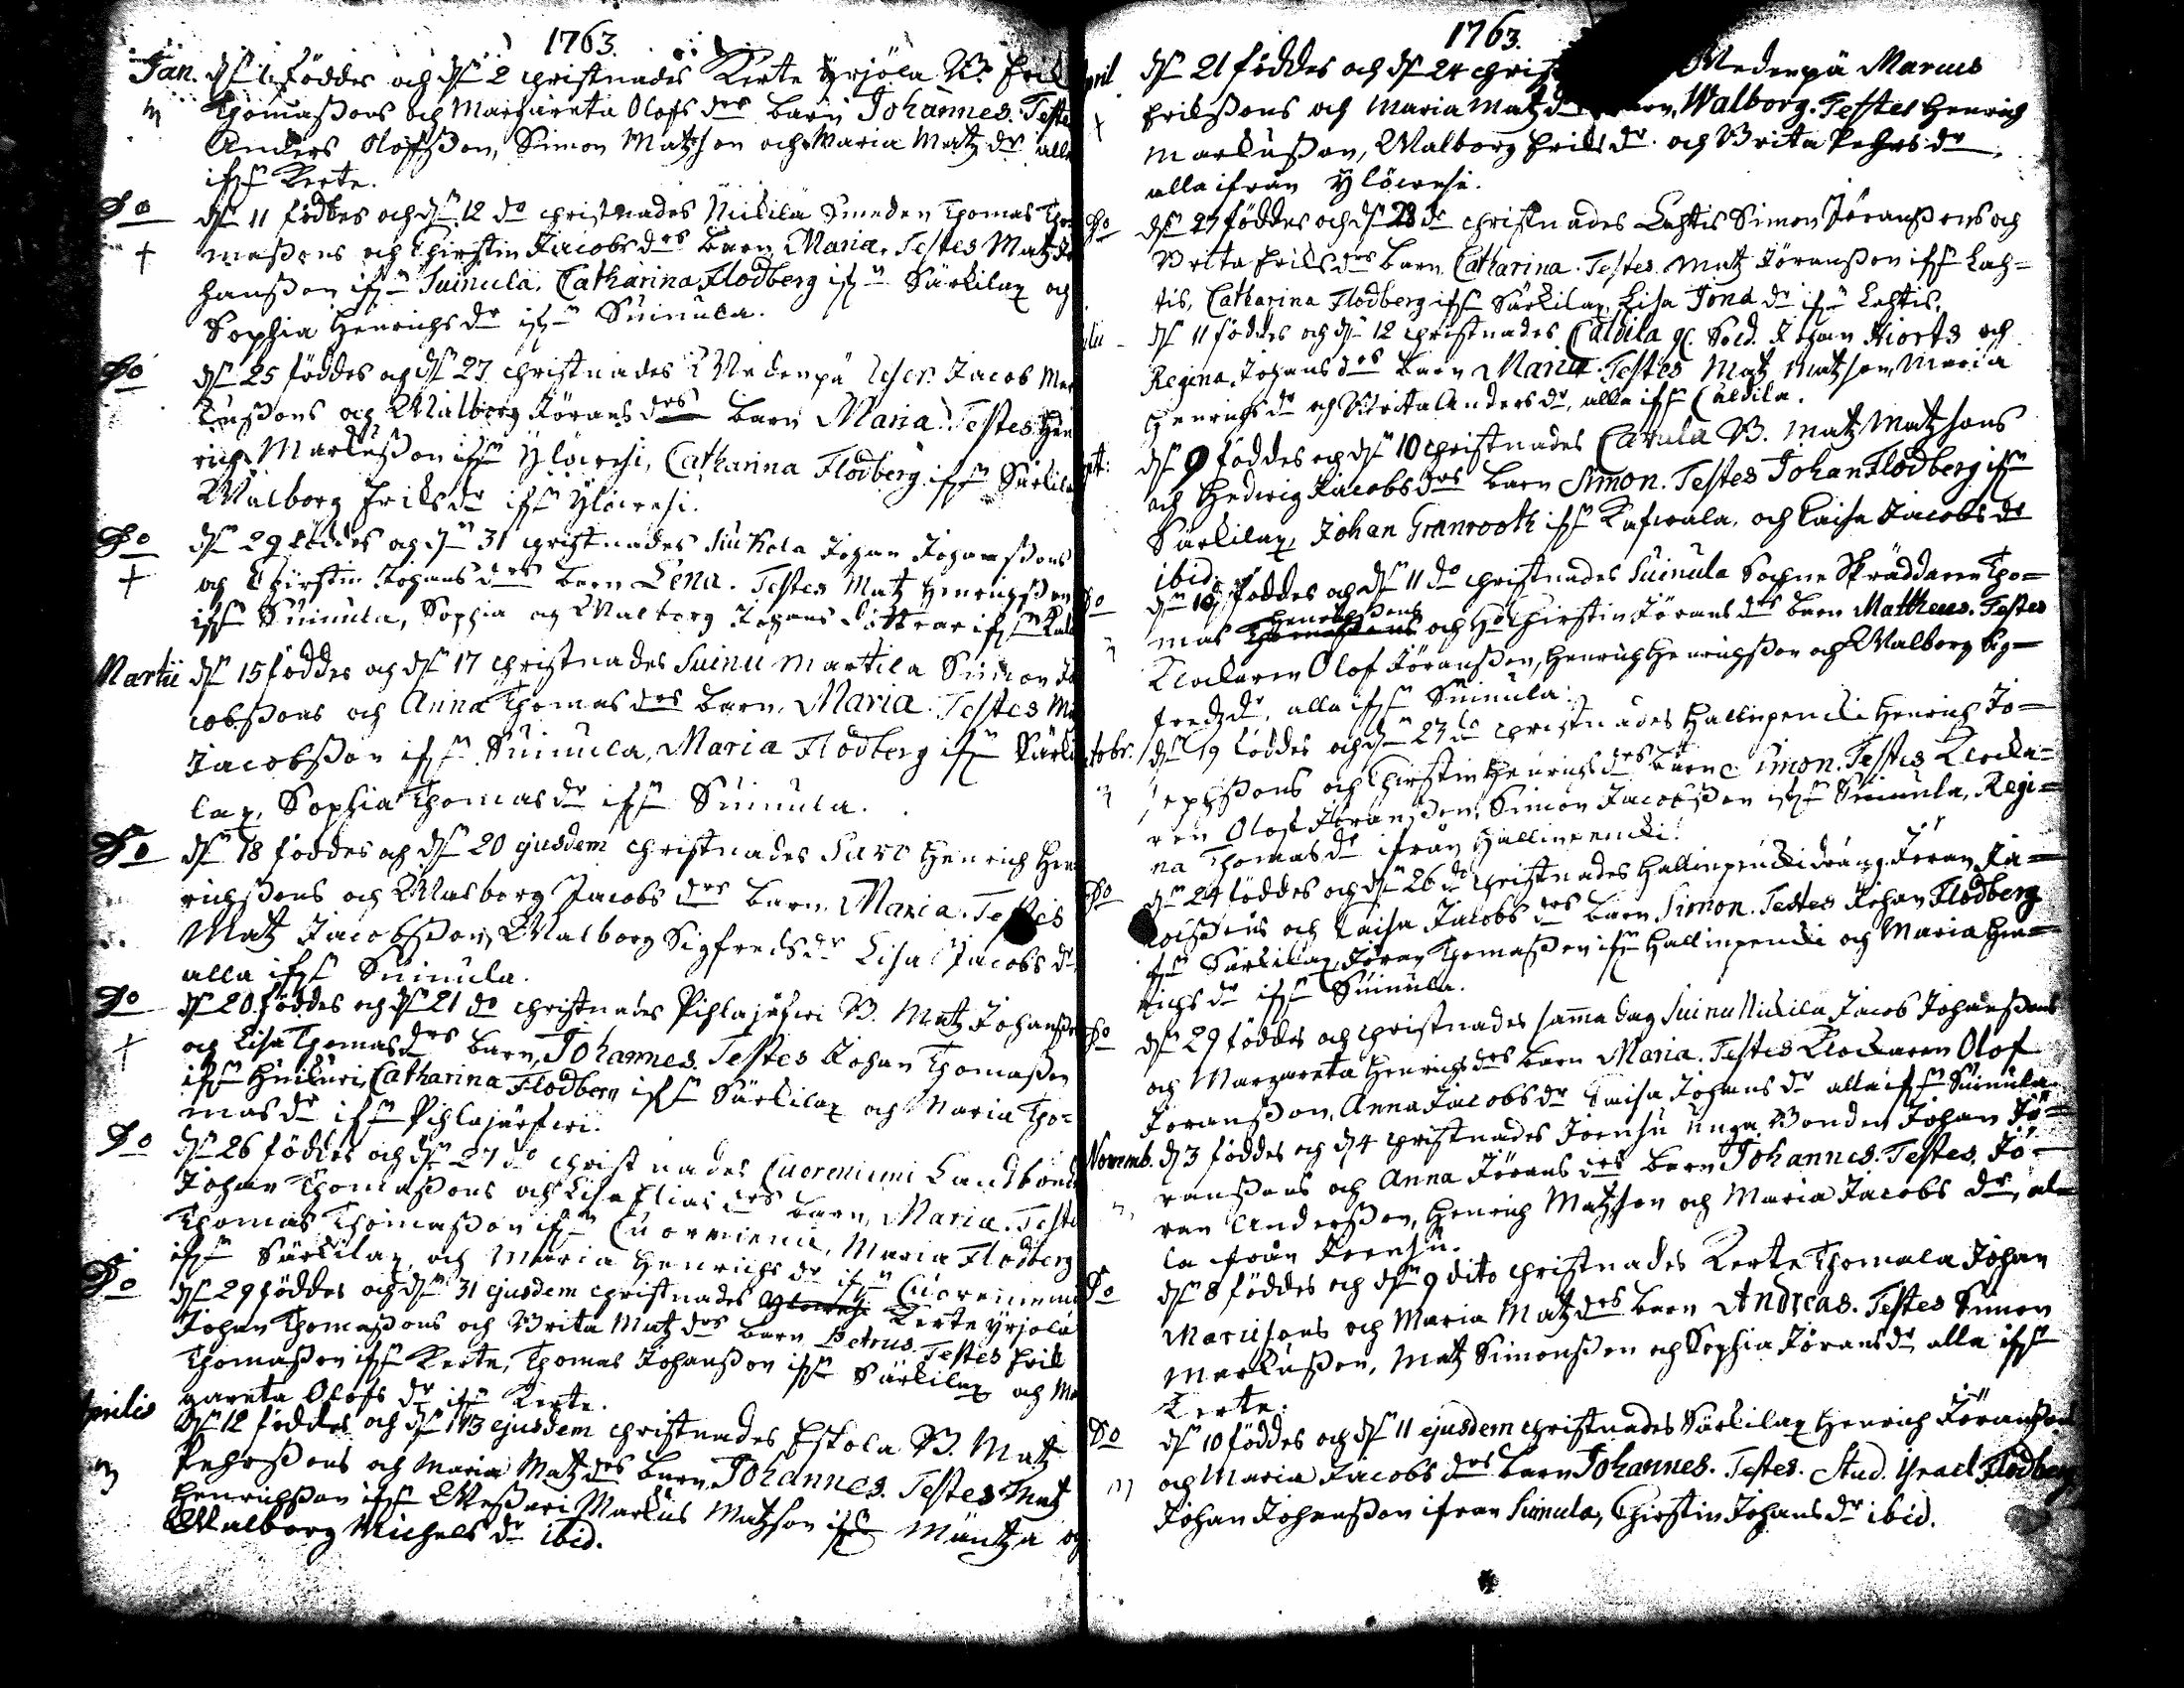 1763.
Jan. d. 1 föddes och d. 2 christnades Kerte Yrjölä B. Erik
Thomaßons och Margareta Olofs drs barn Johannes. Teste
Anders Olofßon, Simon Matzson och Maria Matz dr alle
ifrån Kerte.
Do d. 11 föddes och d. 12 do christnades Nickilä Smeden Thomas Tho
maßons och Chirstin Jacobs drs barn Maria. Testes Matz Jo
hanßon ifrån Suinula, Catharina Flodberg ifrån Särkilax och
Sophia Henrichs dr ifrån Suinula.
Do d. 25 föddes och d. 27 christnades Wedenpä Jacob Mar
kußons och Walborg Jörans drs barn Maria. Testes Hen
rich Markußon ifrån Ylöwesi, Catharina Flodberg ifrån Särkila
Walborg Eriks dr ifrån Ylöwesi.
Do d. 29 föddes och d. 31 christnades Johan Johanßons
och Chirstin Johans drs barn Lena. Testes Matz Henrichßon
ifrån Suinula, Sophia och Walborg Johans döttrar ifrån
Martii d. 15 föddes och d. 17 christnades Suinu Martila Simon Ja
cobßons och Anna Thomas drs barn Maria. Testes Ma
Jacobßon ifrån Suinula, Maria Flodberg ifrån Särki
lax, Sophia Thomas dr ifrån Suinula.
Do d. 18 föddes och d. 20 ejusdem christnades Henrich Hen
richßons och Walborg Jacobs drs barn Maria. Testes
Matz Jacobßon, Walborg Sigfreds dr Lisa Jacobs dr
alla ifrån Suinula.
Do d. 20 föddes och d. 21 do christnades Pihlajäfwi B. Matz Johanßo
och Lisa Thomas drs barn, Johannes. Testes Johan Thomaßon
ifrån Huikuri, Catharina Flodberg ifrån Särkilax och Maria Tho-
mas dr ifrån Pihlajärfwi.
Do d. 26 föddes och d. 27 do christnades Cuoreniemi Landbond
Johan Thomaßons och Lisa Elias drs barn, Maria. Teste
Thomas Thomaßon ifrån Cuoreniemi, Maria Flodberg
ifrån Särkilax, och Maria Henrichs dr ifrån Cuoreniemi
Do d. 29 föddes och d. 31 ejusdem christnades Ylöwesi Kerte Yrjölä
Johan Thomaßons och Brita Matz drs barn Petrus. Testes Erik
Thomaßon ifrån Kerte, Thomas Johanßon ifrån Särkilax och Ma
gareta Olofs dr ifrån Kerte.
Aprilis d. 12 föddes och d. 13 ejusdem christnades Eskola B. Matz
Pehrßons och Maria Matz drs barn, Johannes. Testes Matz
Henrichßon ifrån Markus Matzson ifrån Mäntza och
Walborg Michels dr ibid.
1763.
pril d. 21 föddes och d. 24 christ Wedenpä Marcus
Erikßons och Maria Matz d barn, Walborg. Testes Henrich
Markußon, Walborg Eriks dr och Brita Pehrs dr,
alla ifrån Ylöwesi.
Do d. 27 föddes och d. 28 do christnades Lahtis Simon Jöranßons och
Brita Eriks drs barn Catharina. Testes Matz Jöranßon ifrån Lah-
tis, Catharina Flodberg ifrån Särkilax, Lisa dr ifrån Lahtis.
d. 11 föddes och d. 12 christnades Caldila Sold. Johan Hiorts och
Regina Johans drs barn Maria. Testes Matz Matzson, Maria
Henrichs dr och Brita Anders dr, alla ifrån Caldila.
d. 9 föddes och d. 10 christnades B. Matz Matzsons
och Hedwig Jacobs drs barn Simon. Testes Johan Flodberg ifrån
Särkilax, Johan Granrooth ifrån Kafwala, och Caisa Jacobs dr
ibid.
Do d. 10 föddes och d. 11 do christnades Suinula Sochne Skräddaren Tho-
mas Henrichßons och Chirstin Jörans drs barn Mattheus. Testes
Klockaren Olof Jöranßon, Henrich Henrichßon och Walborg Sig-
fredz dr, alla ifrån Suinula.
tobr. d. 19 föddes och d. 23 do christnades Hallinpencki Henrich Jo-
sephßons och Chirstin Henrichs drs barn Simon. Testes Klocka-
ren Olof Jöranßon, Simon Jacobßon ifrån Suinula, Regi-
na Thomas dr ifrån Hallinpencki.
Do d. 24 föddes och d. 26 do christnades Hallinpencki dräng Jöran Ja-
cobßons och Caisa Jacobs drs barn Simon. Testes Johan Flodberg
ifrån Särkilax, Jöran Thomaßon ifrån Hallinpencki och Maria Hen-
richs dr ifrån Suinula.
Do d. 29 föddes och christnades samma dag Suinu Nickila Jacob Johanßons
och Margareta Henrichs drs barn Maria. Testes Klockaren Olof
Jöranßon, Anna Jacobs dr Caisa Johans dr alla ifrån Suinula
Novemb. d. 3 föddes och d. 4 christnades Joensu unga Bonden Johan Jö-
ranßons och Anna Jörans drs barn Johannes. Testes Jö-
ran Anderßon, Henrich Matzson och Maria Jacobs dr, al-
la från Joensu.
Do d. 8 föddes och d. 9 dito christnades Kerte Thomala Johan
Marcusons och Maria Matz drs barn Andreas. Testes Simon
Markußon, Matz Simonßon och Sophia Jörans dr alla ifrån
Kerte.
Do d. 10 föddes och d. 11 ejusdem christnades Särkilax Henrich Jöranßons
och Maria Jacobs drs barn Johannes. Testes. Stud. Israel Flodberg
Johan Johanßon ifrån Suinula, Chirstin Johans dr ibid.